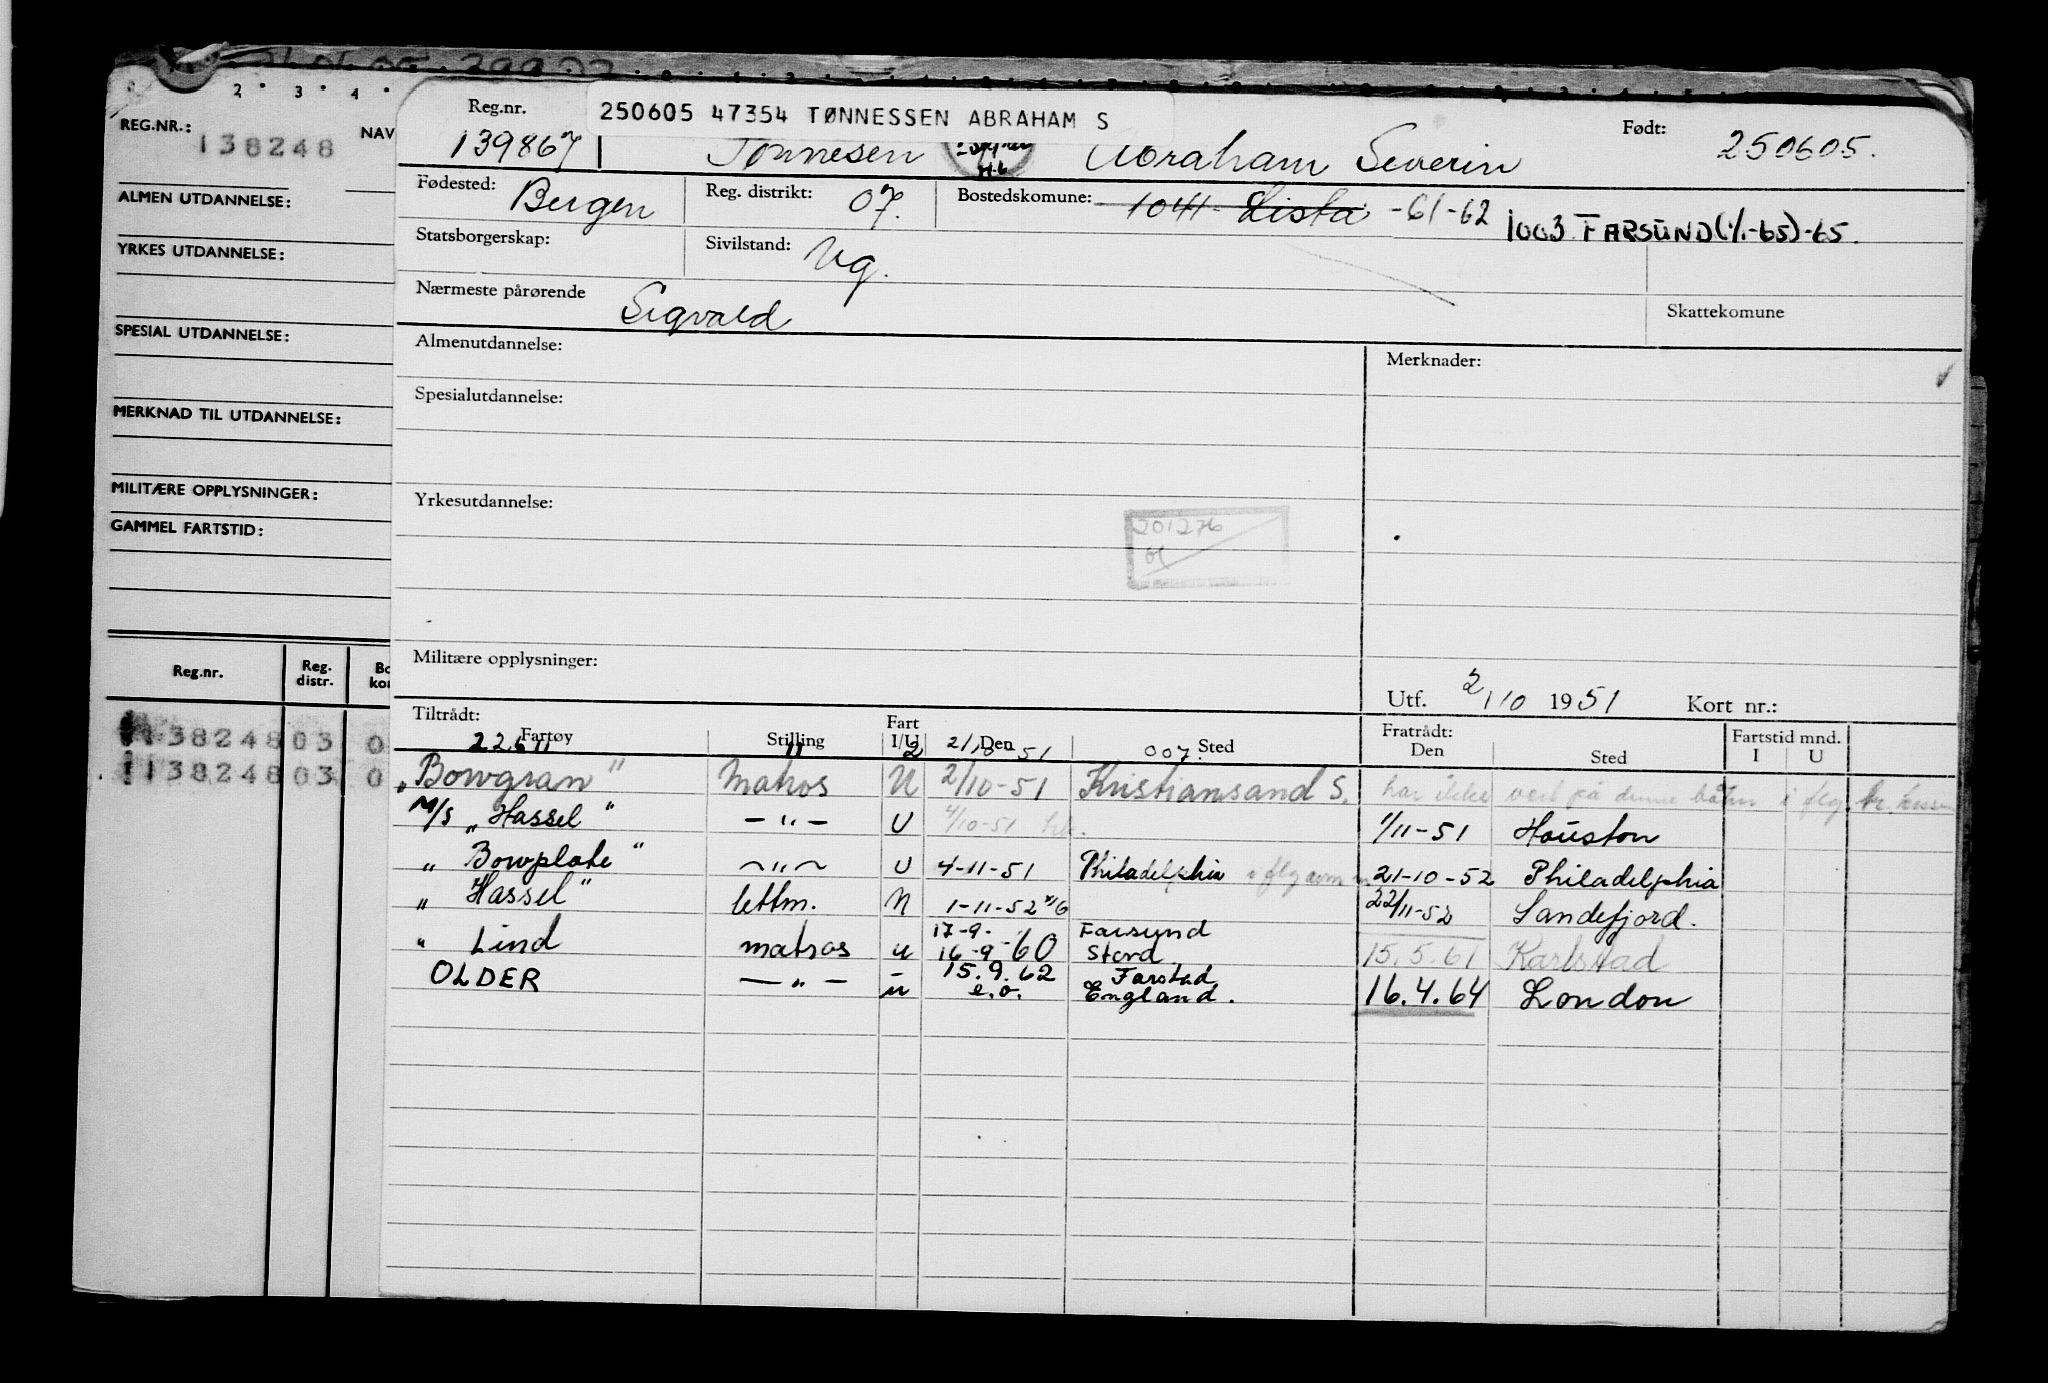 2 3 4
REG.NR.: 138248 NAV
ALMEN UTDANNELSE:
YRKES UTDANNELSE:
SPESIAL UTDANNELSE:
MERKNAD TIL UTDANNELSE:
MILITÆRE OPPLYSNINGER:
GAMMEL FARTSTID:
Reg.nr. Reg. distr. Bo kor
13824803 0
13824803 0
250605 47354 TØNNESSEN ABRAHAM S
Reg.nr. 139867 Tønnesen Abraham Severin Født: 250605.
Fødested: Bergen Reg. distrikt: 07. Bostedskomune: 1041 Lista -61-62 1003 FARSUND (1/1-65)-65.
Statsborgerskap: Sivilstand: Ug.
Nærmeste pårørende Sigvald Skattekomune
Almenutdannelse: Merknader:
Spesialutdannelse:
Yrkesutdannelse:
201276
Militære opplysninger:
Utf. 2/10 1951 Kort nr.:
Tiltrådt: Fartøy Stilling Fart I/U Den Sted Fratrådt: Den Sted Fartstid mnd. I U
22611 11 2 2/10 51 007.
"Bowgran" Matros N 2/10-51 Kristiansand S. har ikke vert på denne båten i flg.
M/S "Hassel" -"- U 4/10-51 1/11-51 Houston
" Bowplate" -"- U 4-11-51 Philadelphia i flg 21-10-52 Philadelphia
" Hassel" lettm. N 1-11-52 22/11-52 Sandefjord.
" Lind matros u 17-9- 16-9-60 Farsund Stord. 15.5.61 Karlstad
OLDER -"- u 15.9.62 e.o. Farstad England. 16.4.64 London